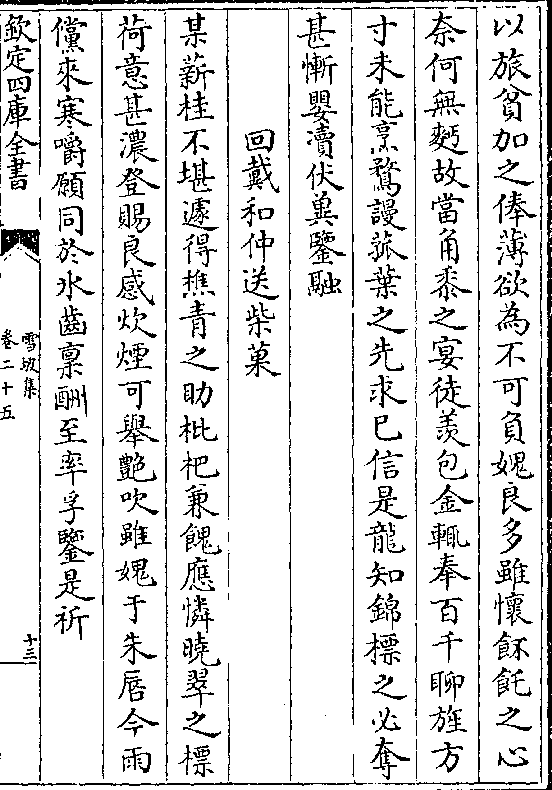 以旅貧加之俸薄欲為不可負媿良多雖懷䬩飥之心
奈何無麫故當角黍之宴徒羨包金輒奉百千聊旌方
寸未能烹鶩謾菰葉之先求已信是龍知錦標之必奪
甚慚嬰瀆伏兾鑒融
回戴和仲送柴菓
某薪桂不堪遽得樵青之助枇杷兼餽應憐曉翠之標
荷意甚濃登賜良感炊煙可舉艷吹雖媿于朱唇今雨
儻來寒嚼願同於氷齒禀酬至率孚鑒是祈
欽定四庫全書
雪坡集
卷二十五
十三